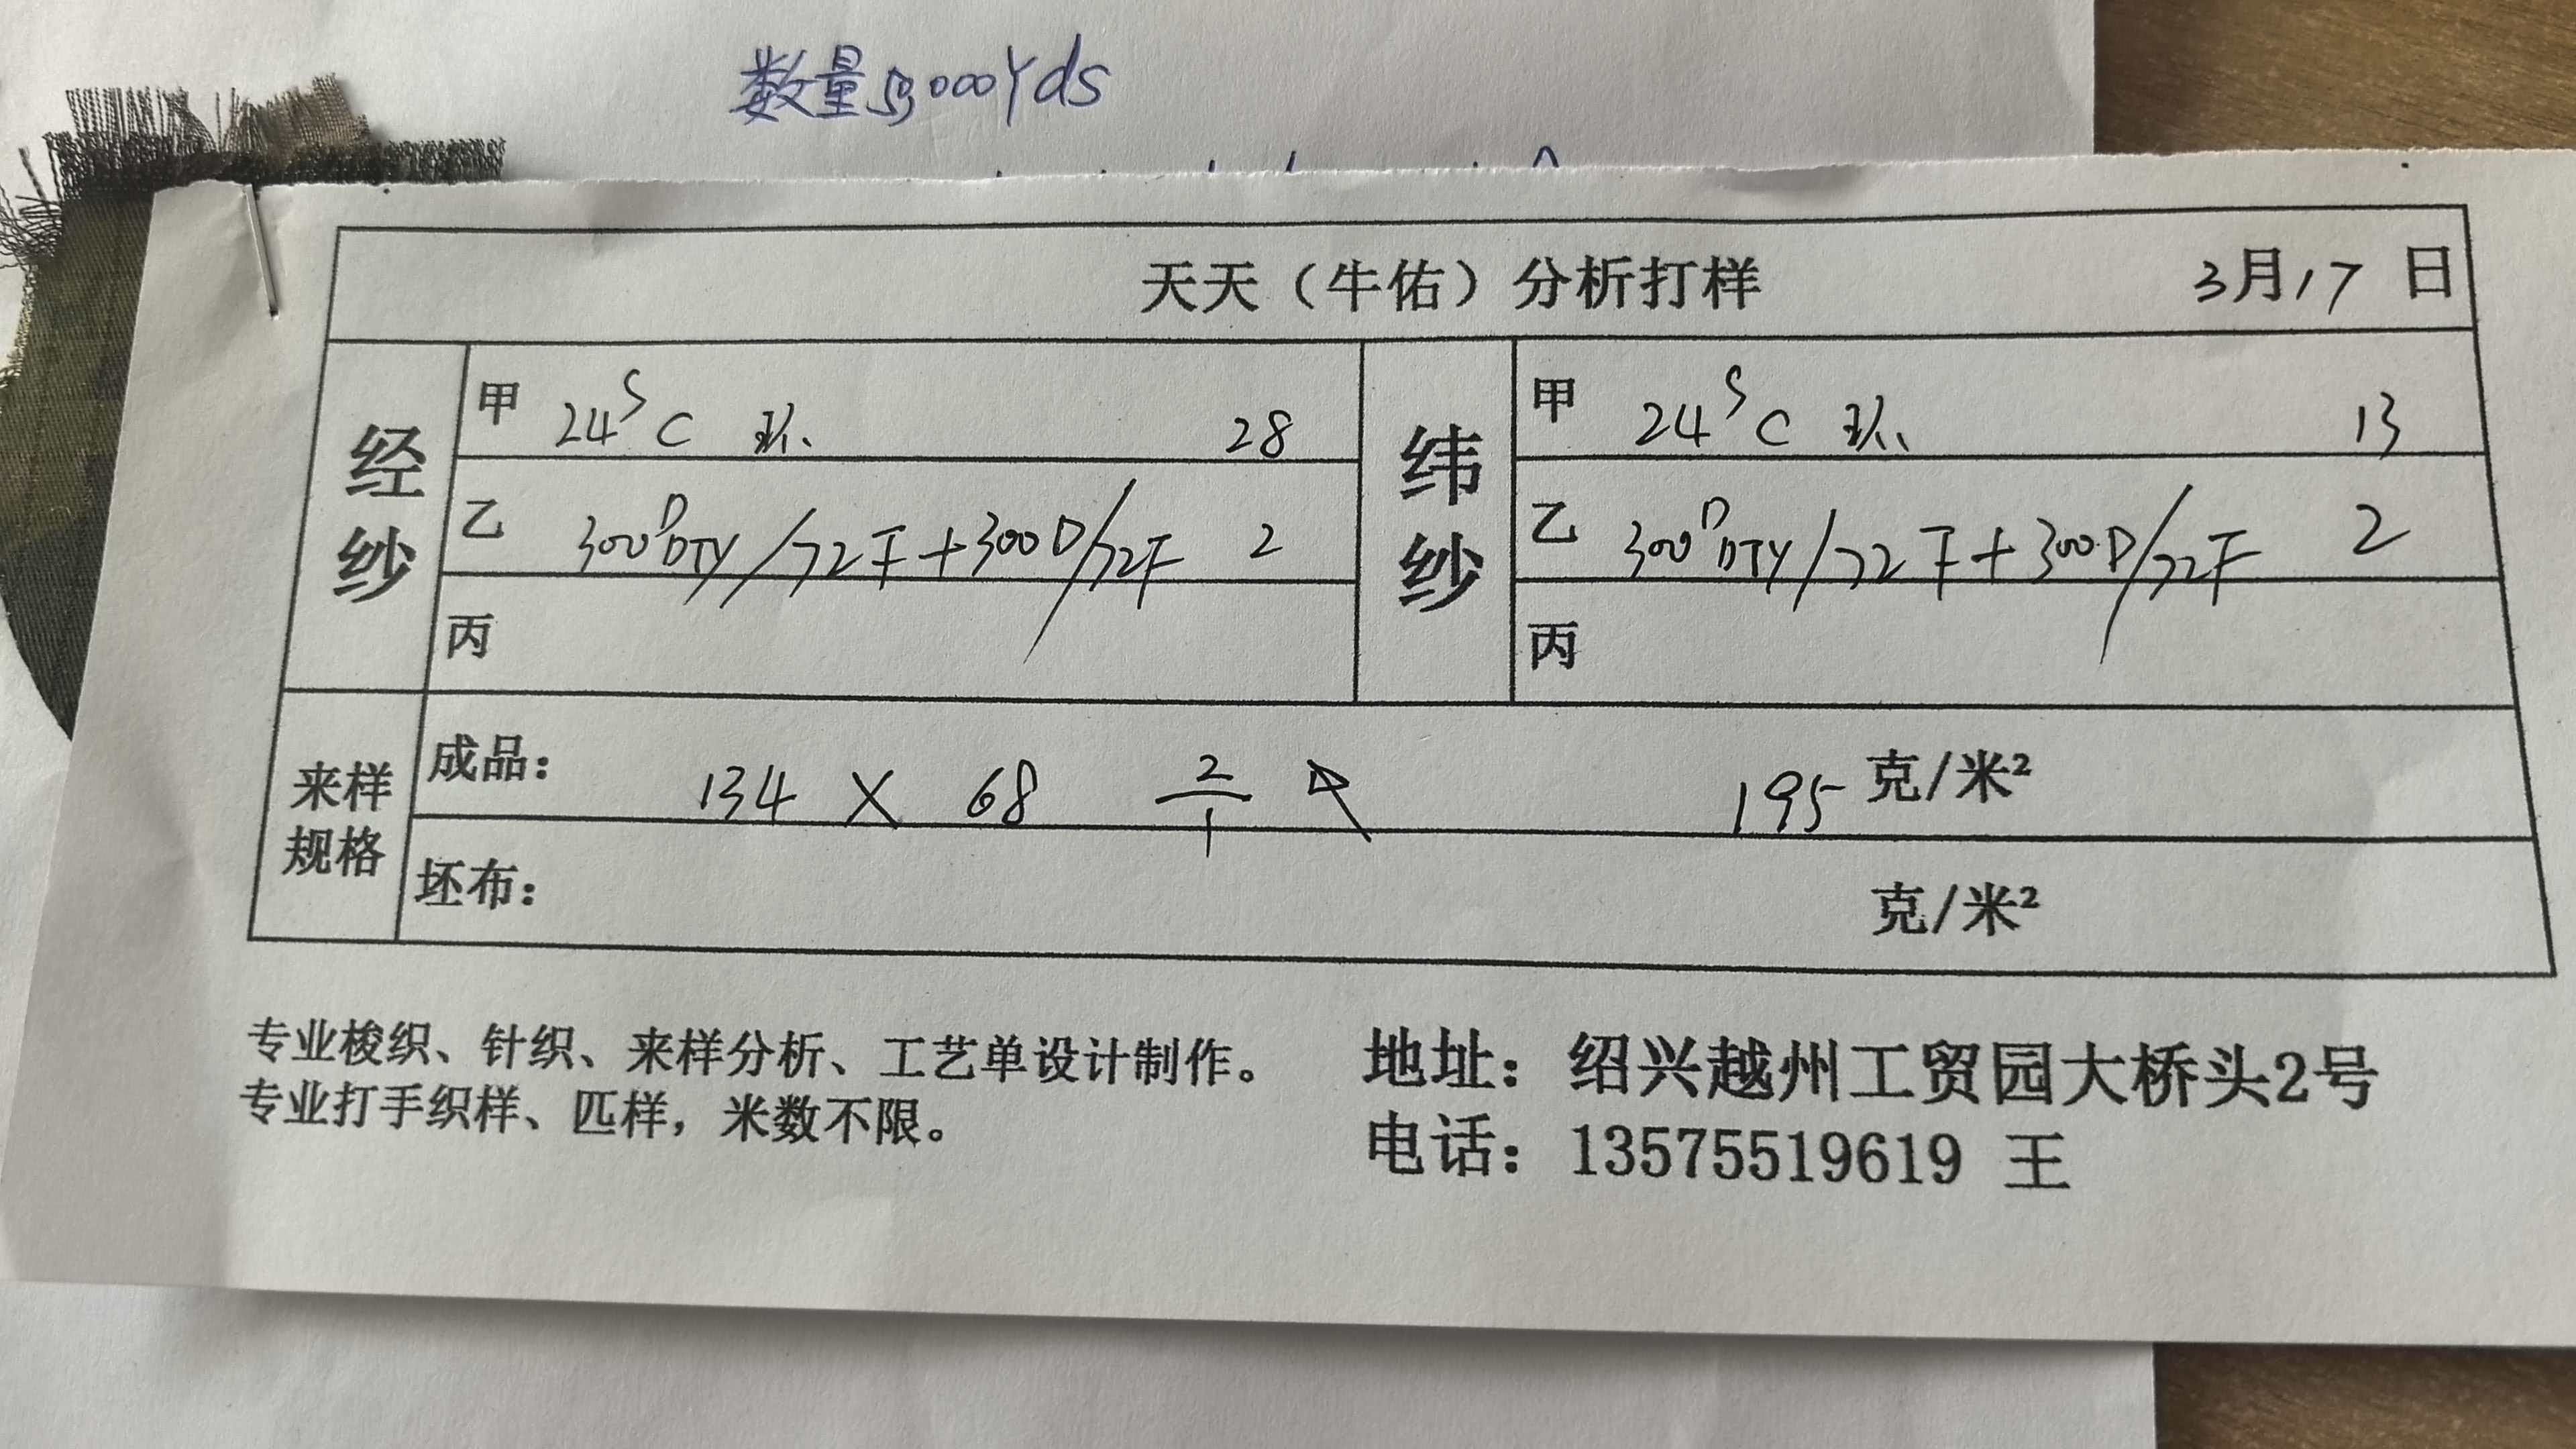 数量50,000Yds
天天（牛佑）分析打样 3月17日
经纱 甲 24ˢC 环、 28 纬纱 甲 24ˢC 环、 13
乙 300ᴰDTY/72F+300D/72F 2 乙 300ᴰDTY/72F+300D/72F 2
丙 丙
来样规格 成品： 134 X 68 2/1 195 克/米²
坯布： 克/米²
专业梭织、针织、来样分析、工艺单设计制作。
专业打手织样、匹样，米数不限。
地址：绍兴越州工贸园大桥头2号
电话：13575519619 王